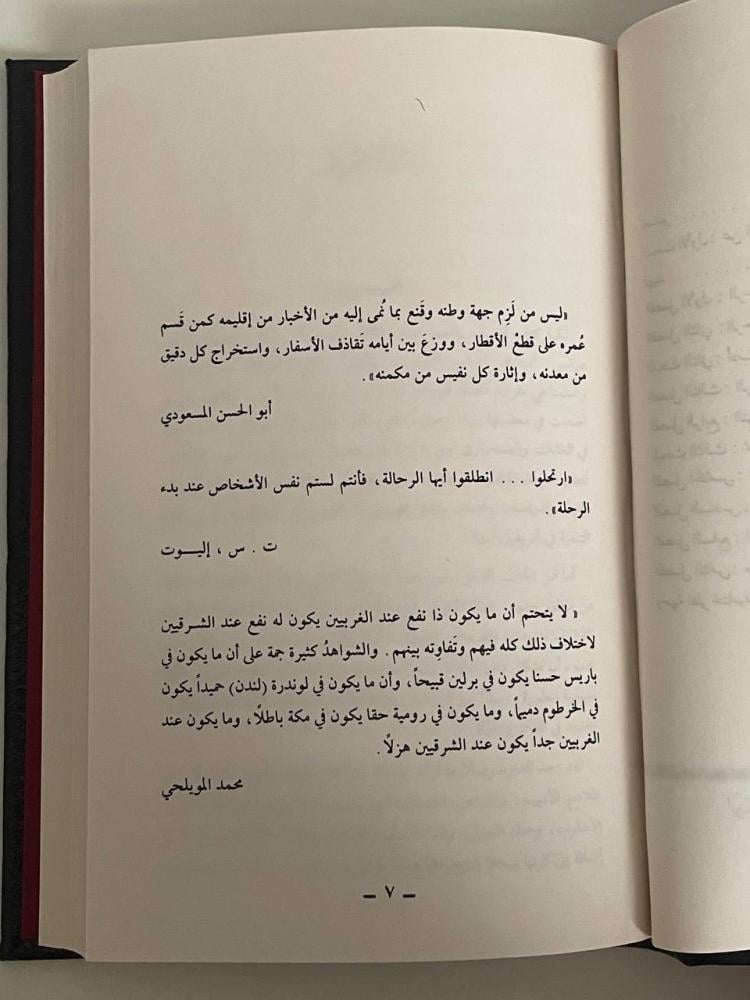 «ليس من لَزِم جهة وطنه وقَنع بما نُمى إليه من الأخبار من إقليمه كمن قَسم
عُمره على قطعْ الأقطار، ووزعَ بين أيامه تَقاذف الأسفار، واستخراج كل دقيق
من معدنه، وإثارة كل نفيس من مكمنه».
أبو الحسن المسعودي
«ارتحلوا ... انطلقوا أيها الرحالة، فأنتم لستم نفس الأشخاص عند بدء
الرحلة».
ت . س ، إليـــوت
« لا يتحتم أن ما يكون ذا نفع عند الغربيين يكون له نفع عند الشرقيين
لاختلاف ذلك كله فيهم وتَفاوِته بينهم . والشواهدُ كثيرة جمة على أن ما يكون في
باريس حسنا يكون في برلين قبيحاً، وأن ما يكون في لوندرة (لندن) حميداً يكون
في الخرطوم دميماً، وما يكون في رومية حقا يكون في مكة باطلًا، وما يكون عند
الغربيين جداً يكون عند الشرقيين هزلًا .
محمد المويلحي
– ٧ –